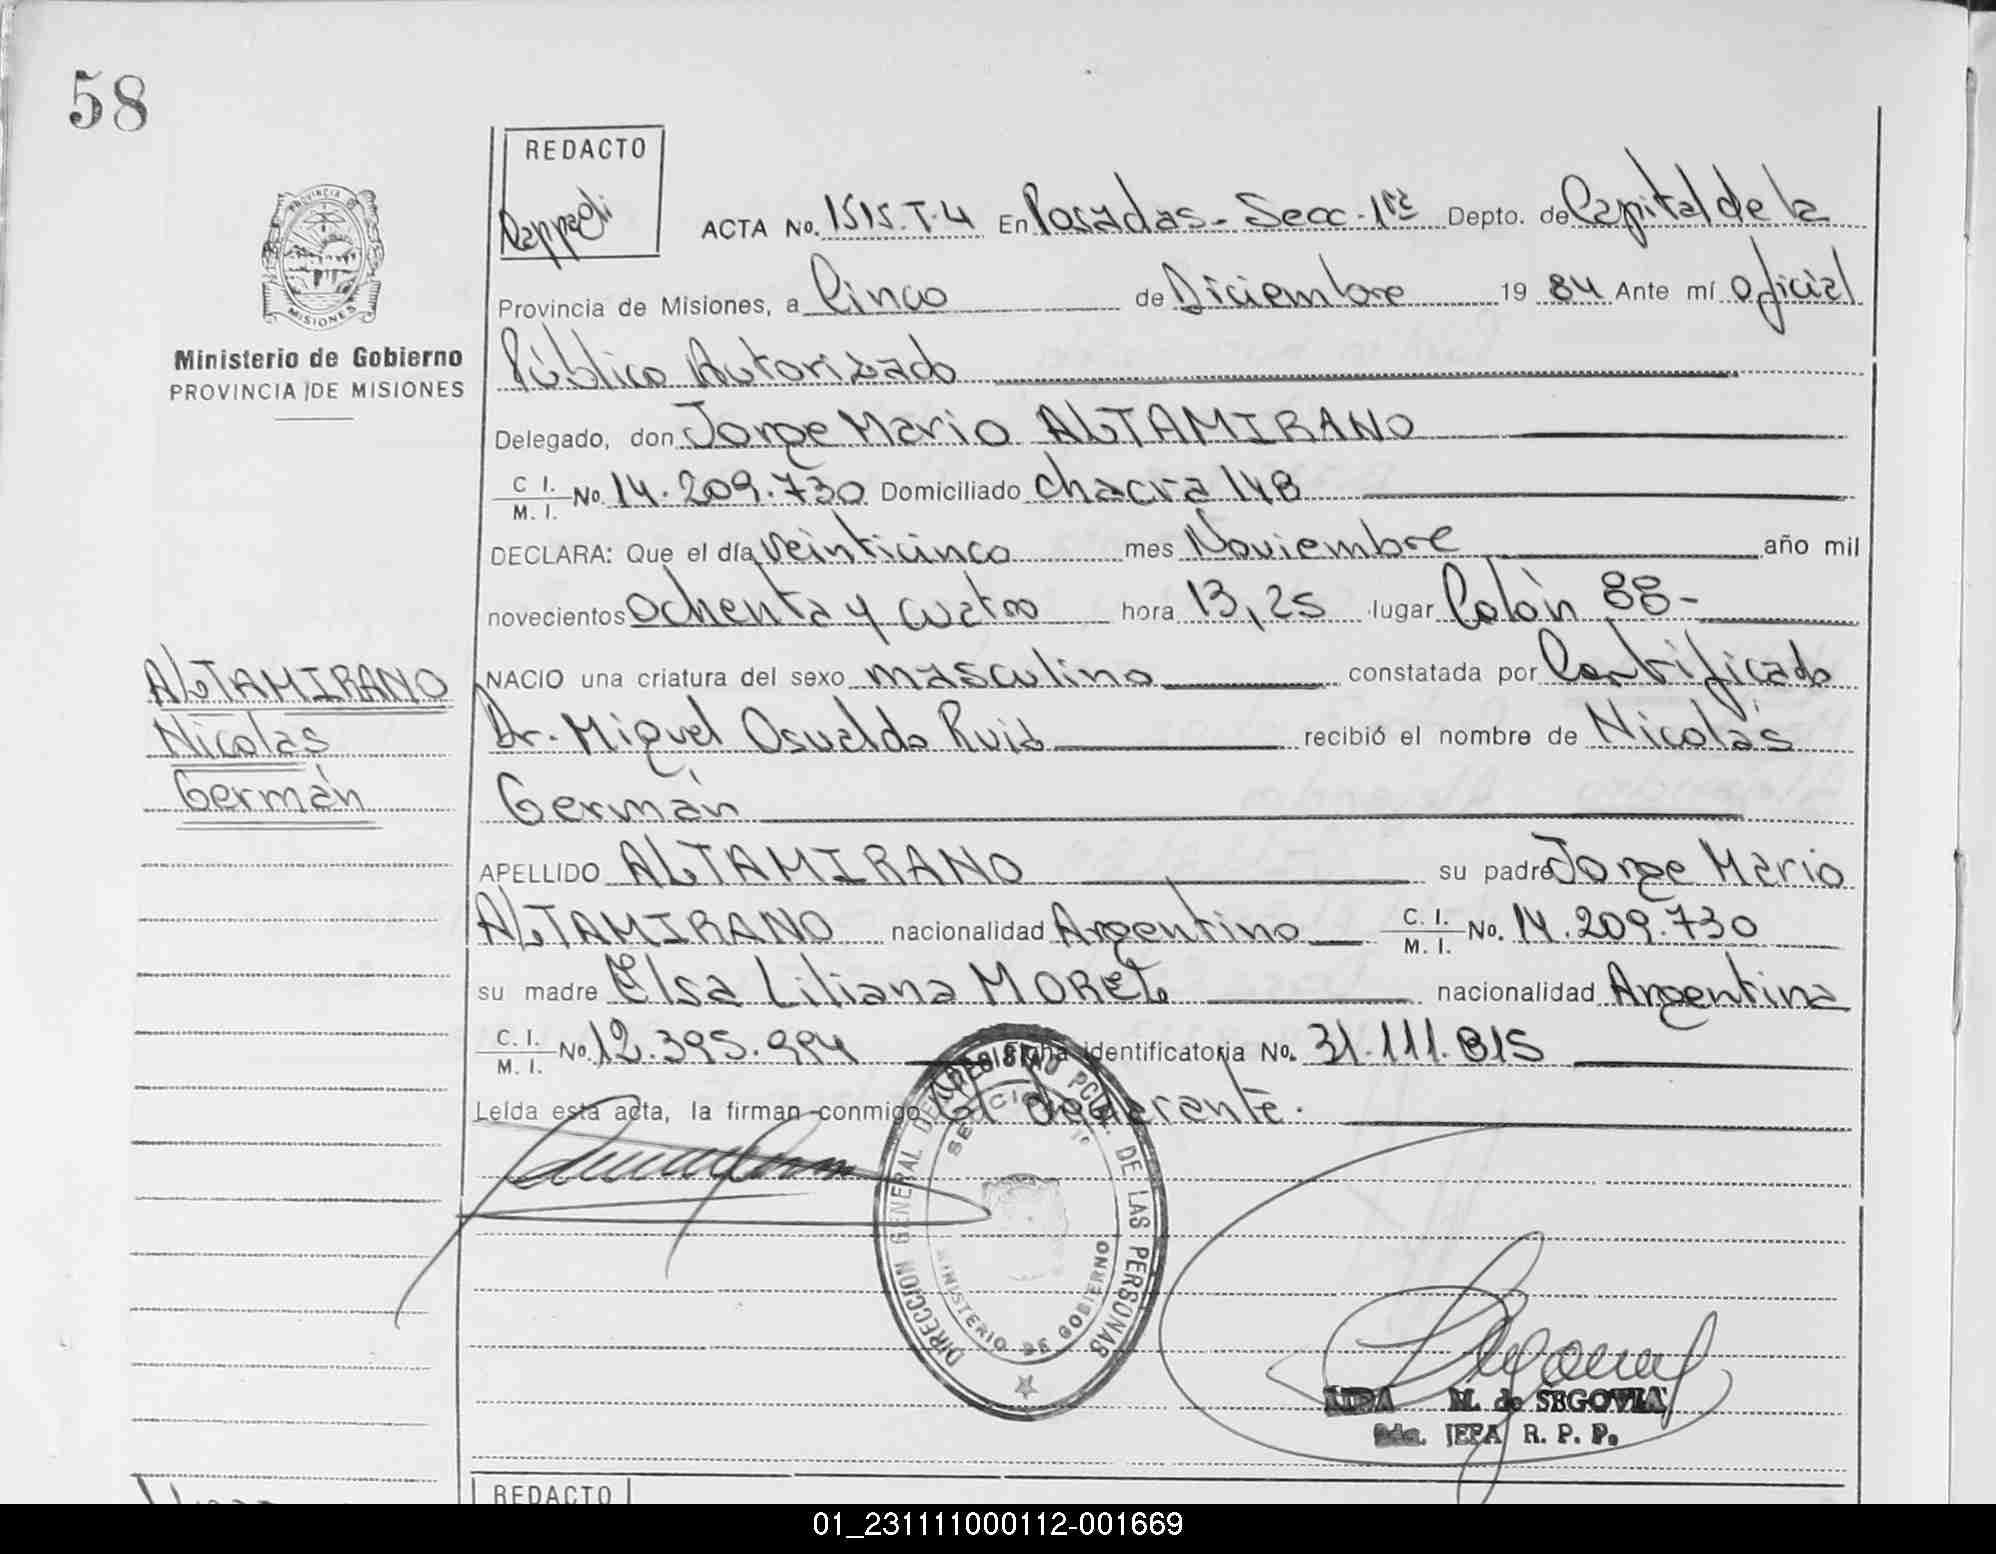 58
REDACTO
PROVINCIA DE
MISIONES
Ministerio de Gobierno
PROVINCIA DE MISIONES
ACTA No. 1515.T.4 En Posadas - Secc - 1ra Depto. de Capital de la
Provincia de Misiones, a Cinco de Diciembre 19 84 Ante mí Oficial
Público Autorizado
Delegado, don Jorge Mario ALTAMIRANO
C. I. M. I. No. 14.209.730 Domiciliado chacra 148
DECLARA: Que el día veinticinco mes Noviembre año mil
novecientos ochenta y cuatro hora 13,25 lugar Colón 88-
ALTAMIRANO
Nicolas
Germán
NACIO una criatura del sexo masculino constatada por
Dr. Miguel Osvaldo Ruiz recibió el nombre de Nicolás
Germán
APELLIDO ALTAMIRANO su padre Jorge Mario
ALTAMIRANO nacionalidad Argentino C. I. M. I. No. 14.209.730
su madre Elsa Liliana nacionalidad Argentina
C. I. M. I. No. 12.395.994 Ficha identificatoria No. 31.111.815
Leída esta acta, la firman conmigo el declarante.
DIRECCION GENERAL DEL REGISTRO PCIAL. DE LAS PERSONAS
SECCION 1º
MINISTERIO DE GOBIERNO
M. de SEGOVIA
2da. JEFA R. P. P.
REDACTO
01_231111000112-001669